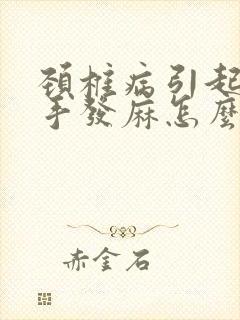 頚椎病引起
手發麻怎麼
赤金石